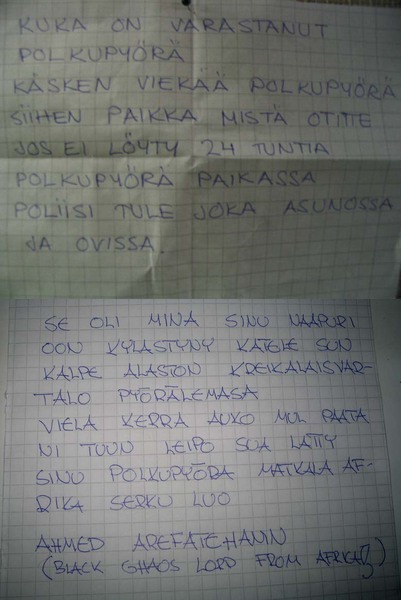 KUKA ON VARASTANUT
POLKUPYÖRÄ
KÄSKEN VIEKÄÄ POLKUPYÖRÄ
SIIHEN PAIKKA MISTÄ OTITTE
JOS EI LÖYTY 24 TUNTIA
POLKUPYÖRÄ PAIKASSA
POLIISI TULE JOKA ASUNOSSA
JA OVISSA.
SE OLI MINA SINU NAAPURI
OON KYLASTYNY KATELE SUN
KALPE ALASTON KREIKALAISVAR-
TALO PYÖRÄLEMASA
VIELA KERRA AUKO MUL PAATA
NI TUUN LEIPO SUA LATTY
SINU POLKUPYÖRA MATKALA AF-
RIKA SERKU LUO
AHMED AREFATEHANIN
(BLACK GHAOS LORD FROM AFRIKA)